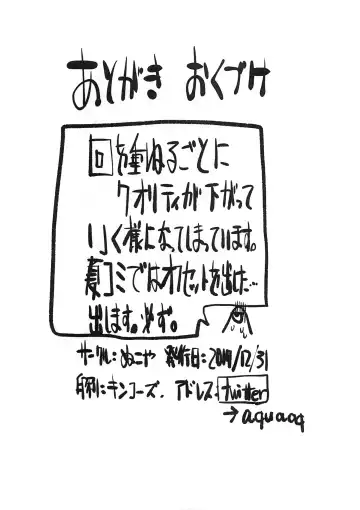 あとがき おくづけ
回を重ねるごとに
クオリティが下がって
いく様になってしまっています。
夏コミではオフセットを出した…
出します。必ず。
サークル:ぬこや 発行日:2011/12/31
印刷:キンコーズ. アドレス. twitter
→aquaoq